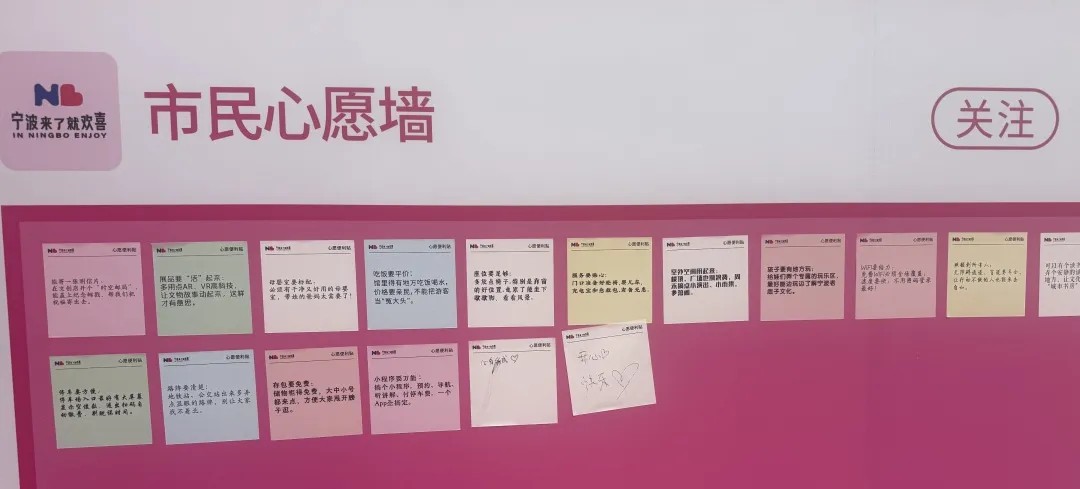 NB
宁波来了就欢喜
IN NINGBO ENJOY
市民心愿墙
关注
心愿便利贴
心愿便利贴
展品要“活”起来:
多用点AR、VR高科技,
让文物故事动起来,这样
才有意思。
心愿便利贴
母婴室要标配:
必须有个干净又好用的母婴
室,带娃的爸妈太需要了!
心愿便利贴
吃饭要平价:
馆里得有地方吃饭喝水,
价格要亲民,不能把游客
当“冤大头”。
心愿便利贴
座位要足够:
多放点椅子,特别是靠窗
的好位置,逛累了能坐下
歇歇脚、看看风景。
心愿便利贴
服务要贴心:
门口准备好轮椅、婴儿车,
充电宝和急救包,有备无患。
心愿便利贴
室外空间用起来:
心愿便利贴
孩子要有地方玩:
给娃们弄个专属的玩乐区,
最好能边玩边了解宁波老
底子文化。
心愿便利贴
WiFi要给力:
免费WiFi必须全场覆盖,
速度要快,不用密码登录
最好!
心愿便利贴
心愿便利贴
停车要方便:
心愿便利贴
路牌要清楚:
地铁站、公交站出来多弄
点显眼的路牌,别让大家
找不着北。
心愿便利贴
存包要免费:
储物柜得免费,大中小号
都来点,方便大家甩开膀
子逛。
心愿便利贴
小程序要万能:
搞个小程序,预约、导航、
听讲解、付停车费,一个
App全搞定。
心愿便利贴
心愿便利贴
开心